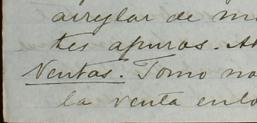 arreglar de m
tes apuros. A
Ventas. Tomo no
la venta en lo